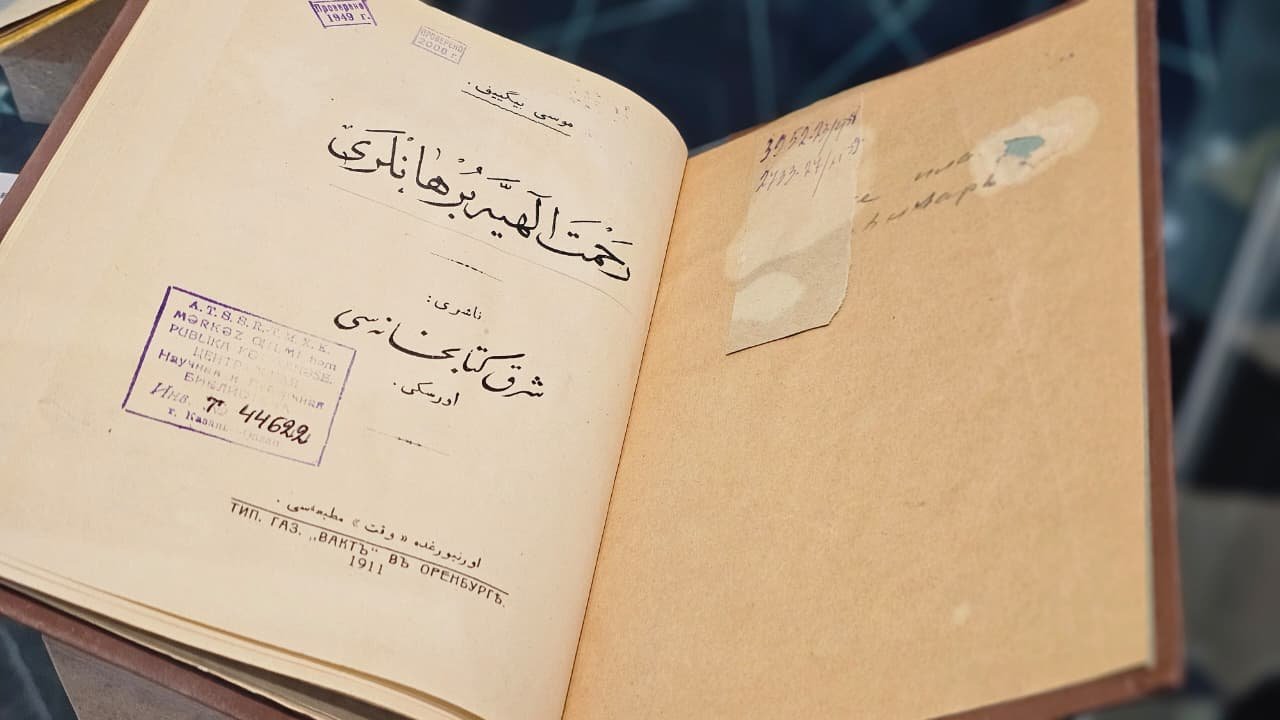 Проверено
1949 г.
ПРОВЕРЕНО
2008 г.
موسى بيگييف.
رَحْمَتَ اۤلٓهيَّه بُرْهَانْلَرَىْ
ناشرى:
شرق كتابخانه‌سى
اورسكى.
A.T.S.S.R. T.M.X.K.
MƏRKƏZ ƢILMI həm
PUBLIKA
ЦЕНТР
Научная и
БИБЛИО
Инв. № T 44622
г. Казань
اورنبورغده «وقت» مطبعه‌سى.
ТИП. ГАЗ. „ВАКТЪ" ВЪ ОРЕНБУРГѢ.
1911